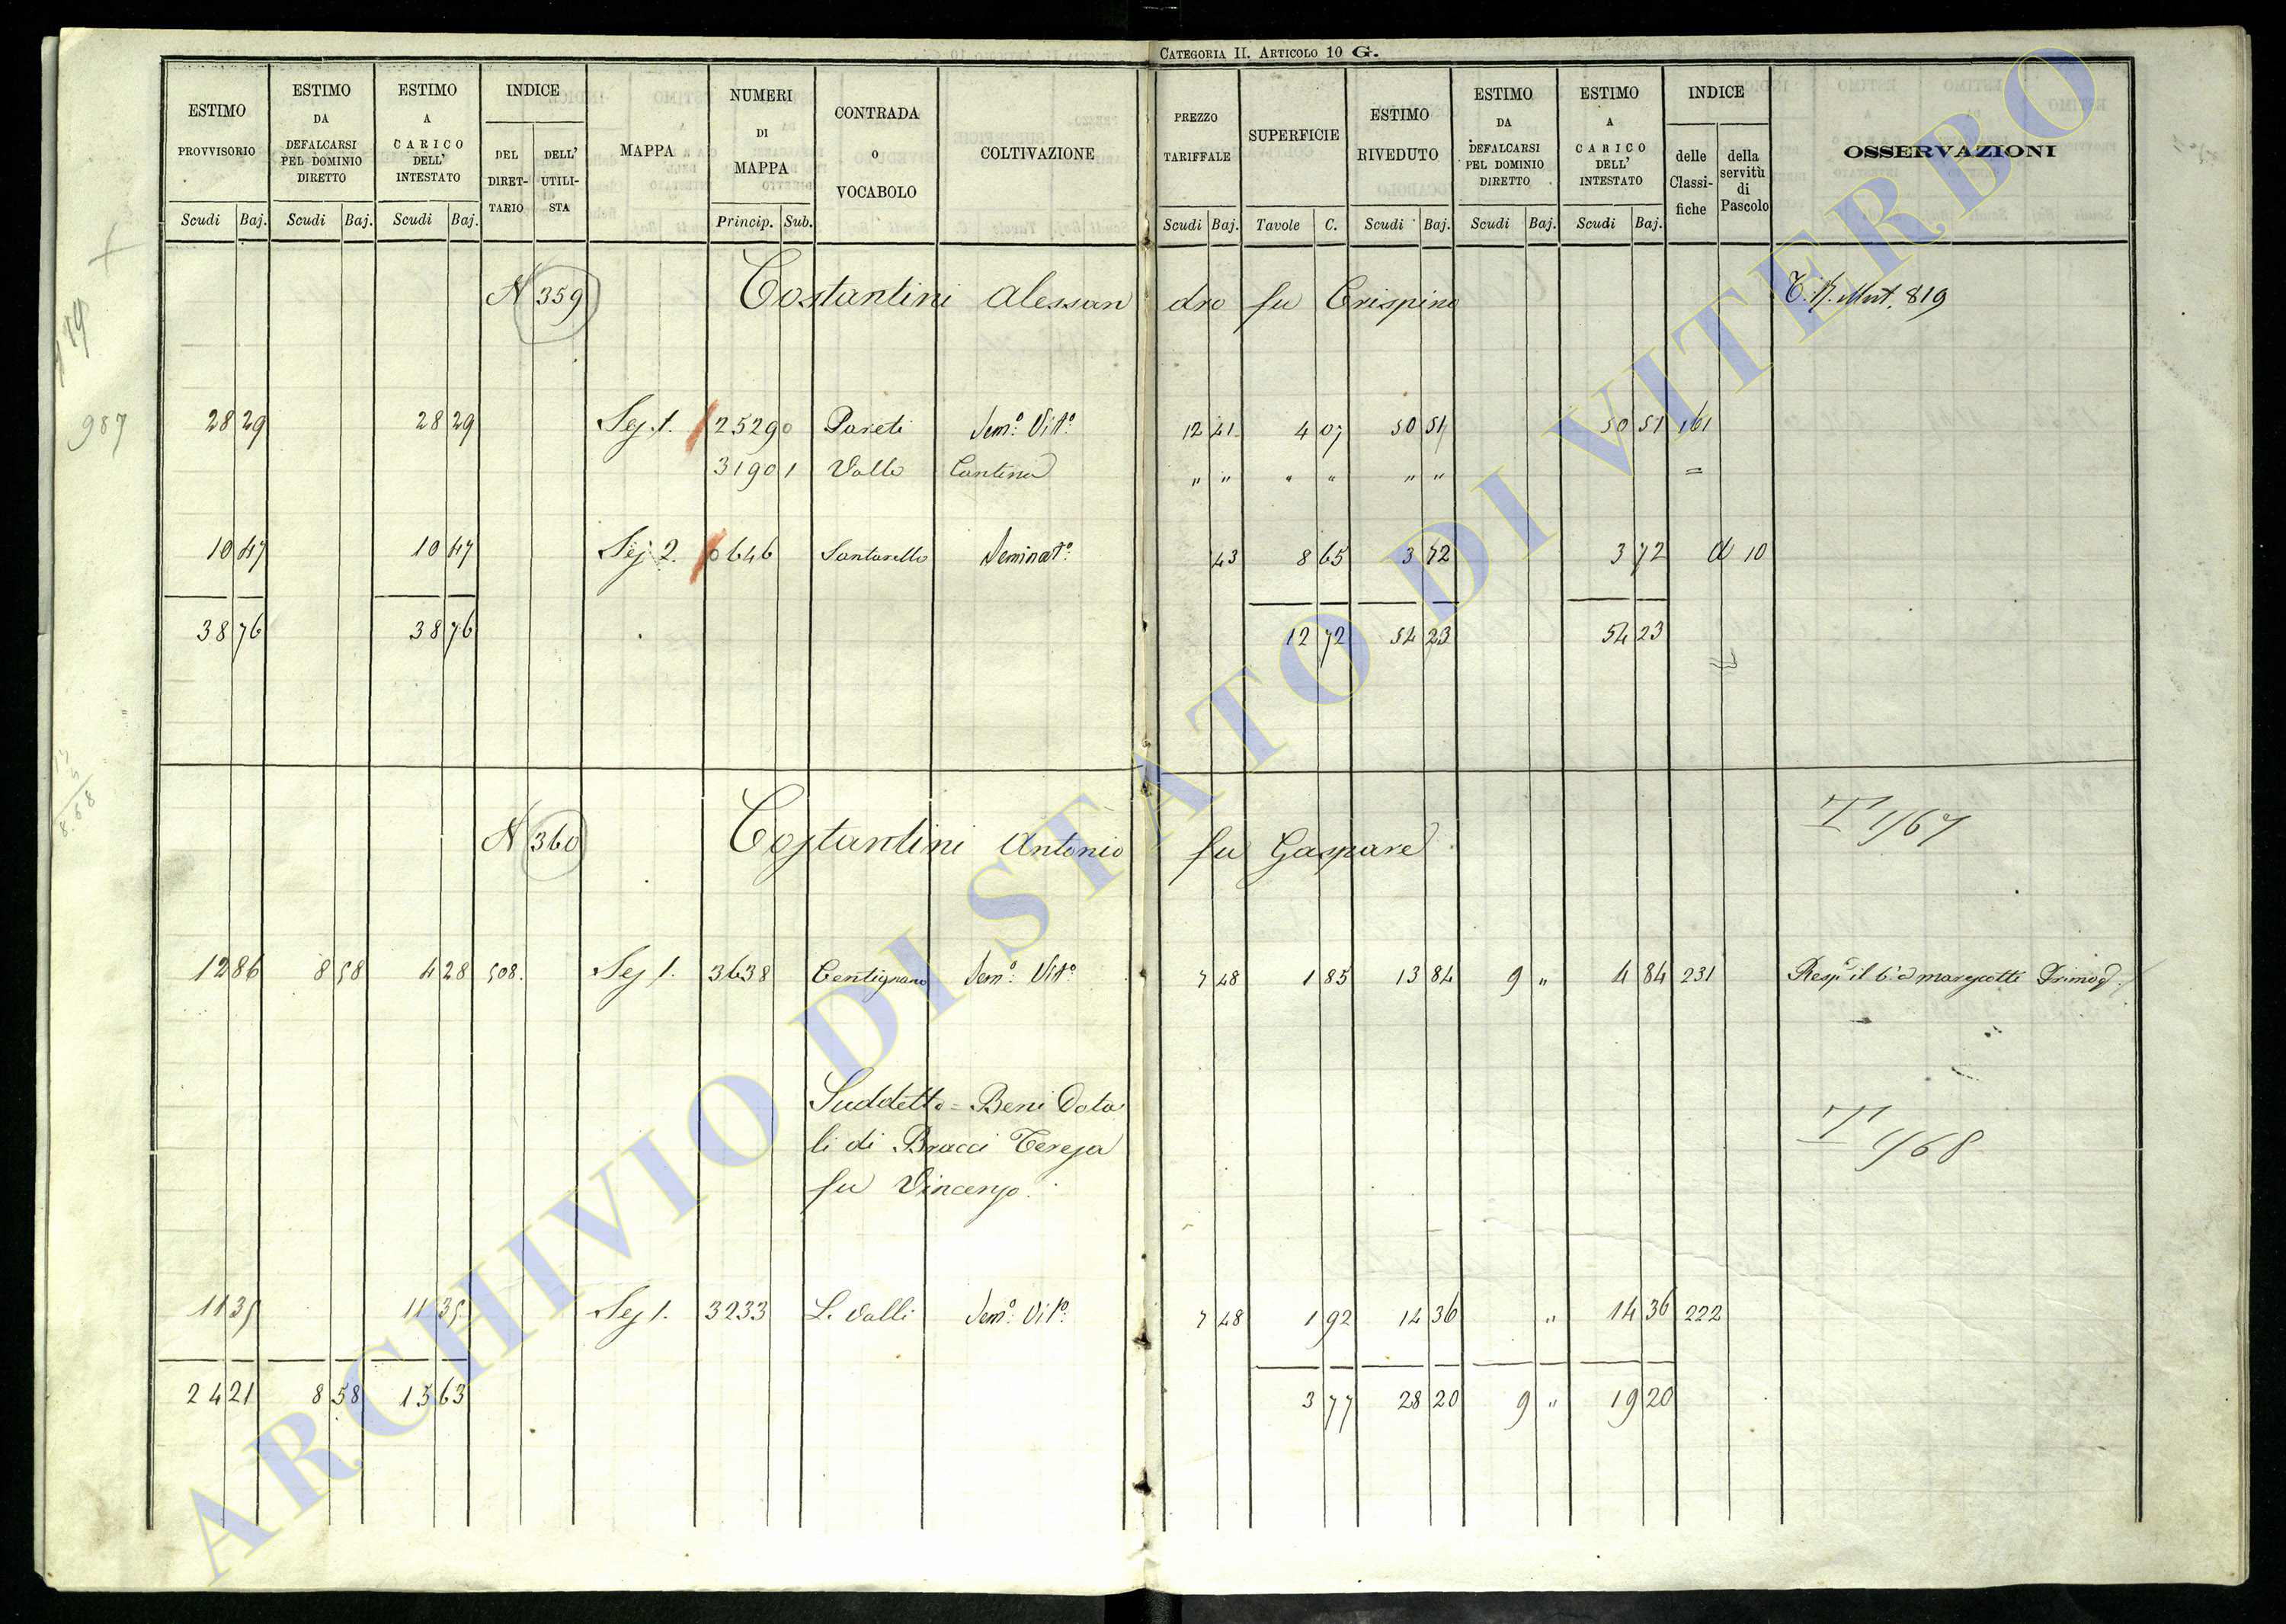 CATEGORIA II. ARTICOLO 10 G.
ESTIMO PROVVISORIO Scudi Baj.
ESTIMO DA DEFALCARSI PEL DOMINIO DIRETTO Scudi Baj.
ESTIMO A CARICO DELL' INTESTATO Scudi Baj.
INDICE DEL DIRET-TARIO DELL' UTILI-STA
MAPPA
NUMERI DI MAPPA Princip. Sub.
CONTRADA O VOCABOLO
COLTIVAZIONE
PREZZO TARIFFALE Scudi Baj.
SUPERFICIE Tavole C.
ESTIMO RIVEDUTO Scudi Baj.
ESTIMO DA DEFALCARSI PEL DOMINIO DIRETTO Scudi Baj.
ESTIMO A CARICO DELL' INTESTATO Scudi Baj.
INDICE delle Classi-fiche della servitù di Pascolo
OSSERVAZIONI
N 359 Costantini Alessan dro fu Crispino Mut. 819
987
28 29 28 29 Sez. 1. 2529 0 Pareti Sem.º Vit.º 12 41 4 07 50 51 50 51 161
3190 1 Valle Cantina " " " " " " =
10 47 10 47 Sez 2. 0646 Santarello Seminat.º 43 8 65 3 72 3 72 d 10
38 76 38 76 12 72 54 23 54 23
N 360 Costantini Antonio fu Gaspare
12 86 8 58 4 28 508. Sez 1. 3638 Centignano Sem.º Vit.º 7 48 1 85 13 84 9 " 4 84 231
Suddetto = Beni Dota
li di Bracci Teresa
fu Vincenzo.
11 35 11 35 Sez 1. 3233 Li Valli Sem.º Vit.º 7 48 1 92 14 36 " 14 36 222
24 21 8 58 15 63 3 77 28 20 9 " 19 20
ARCHIVIO DI STATO DI VITERBO